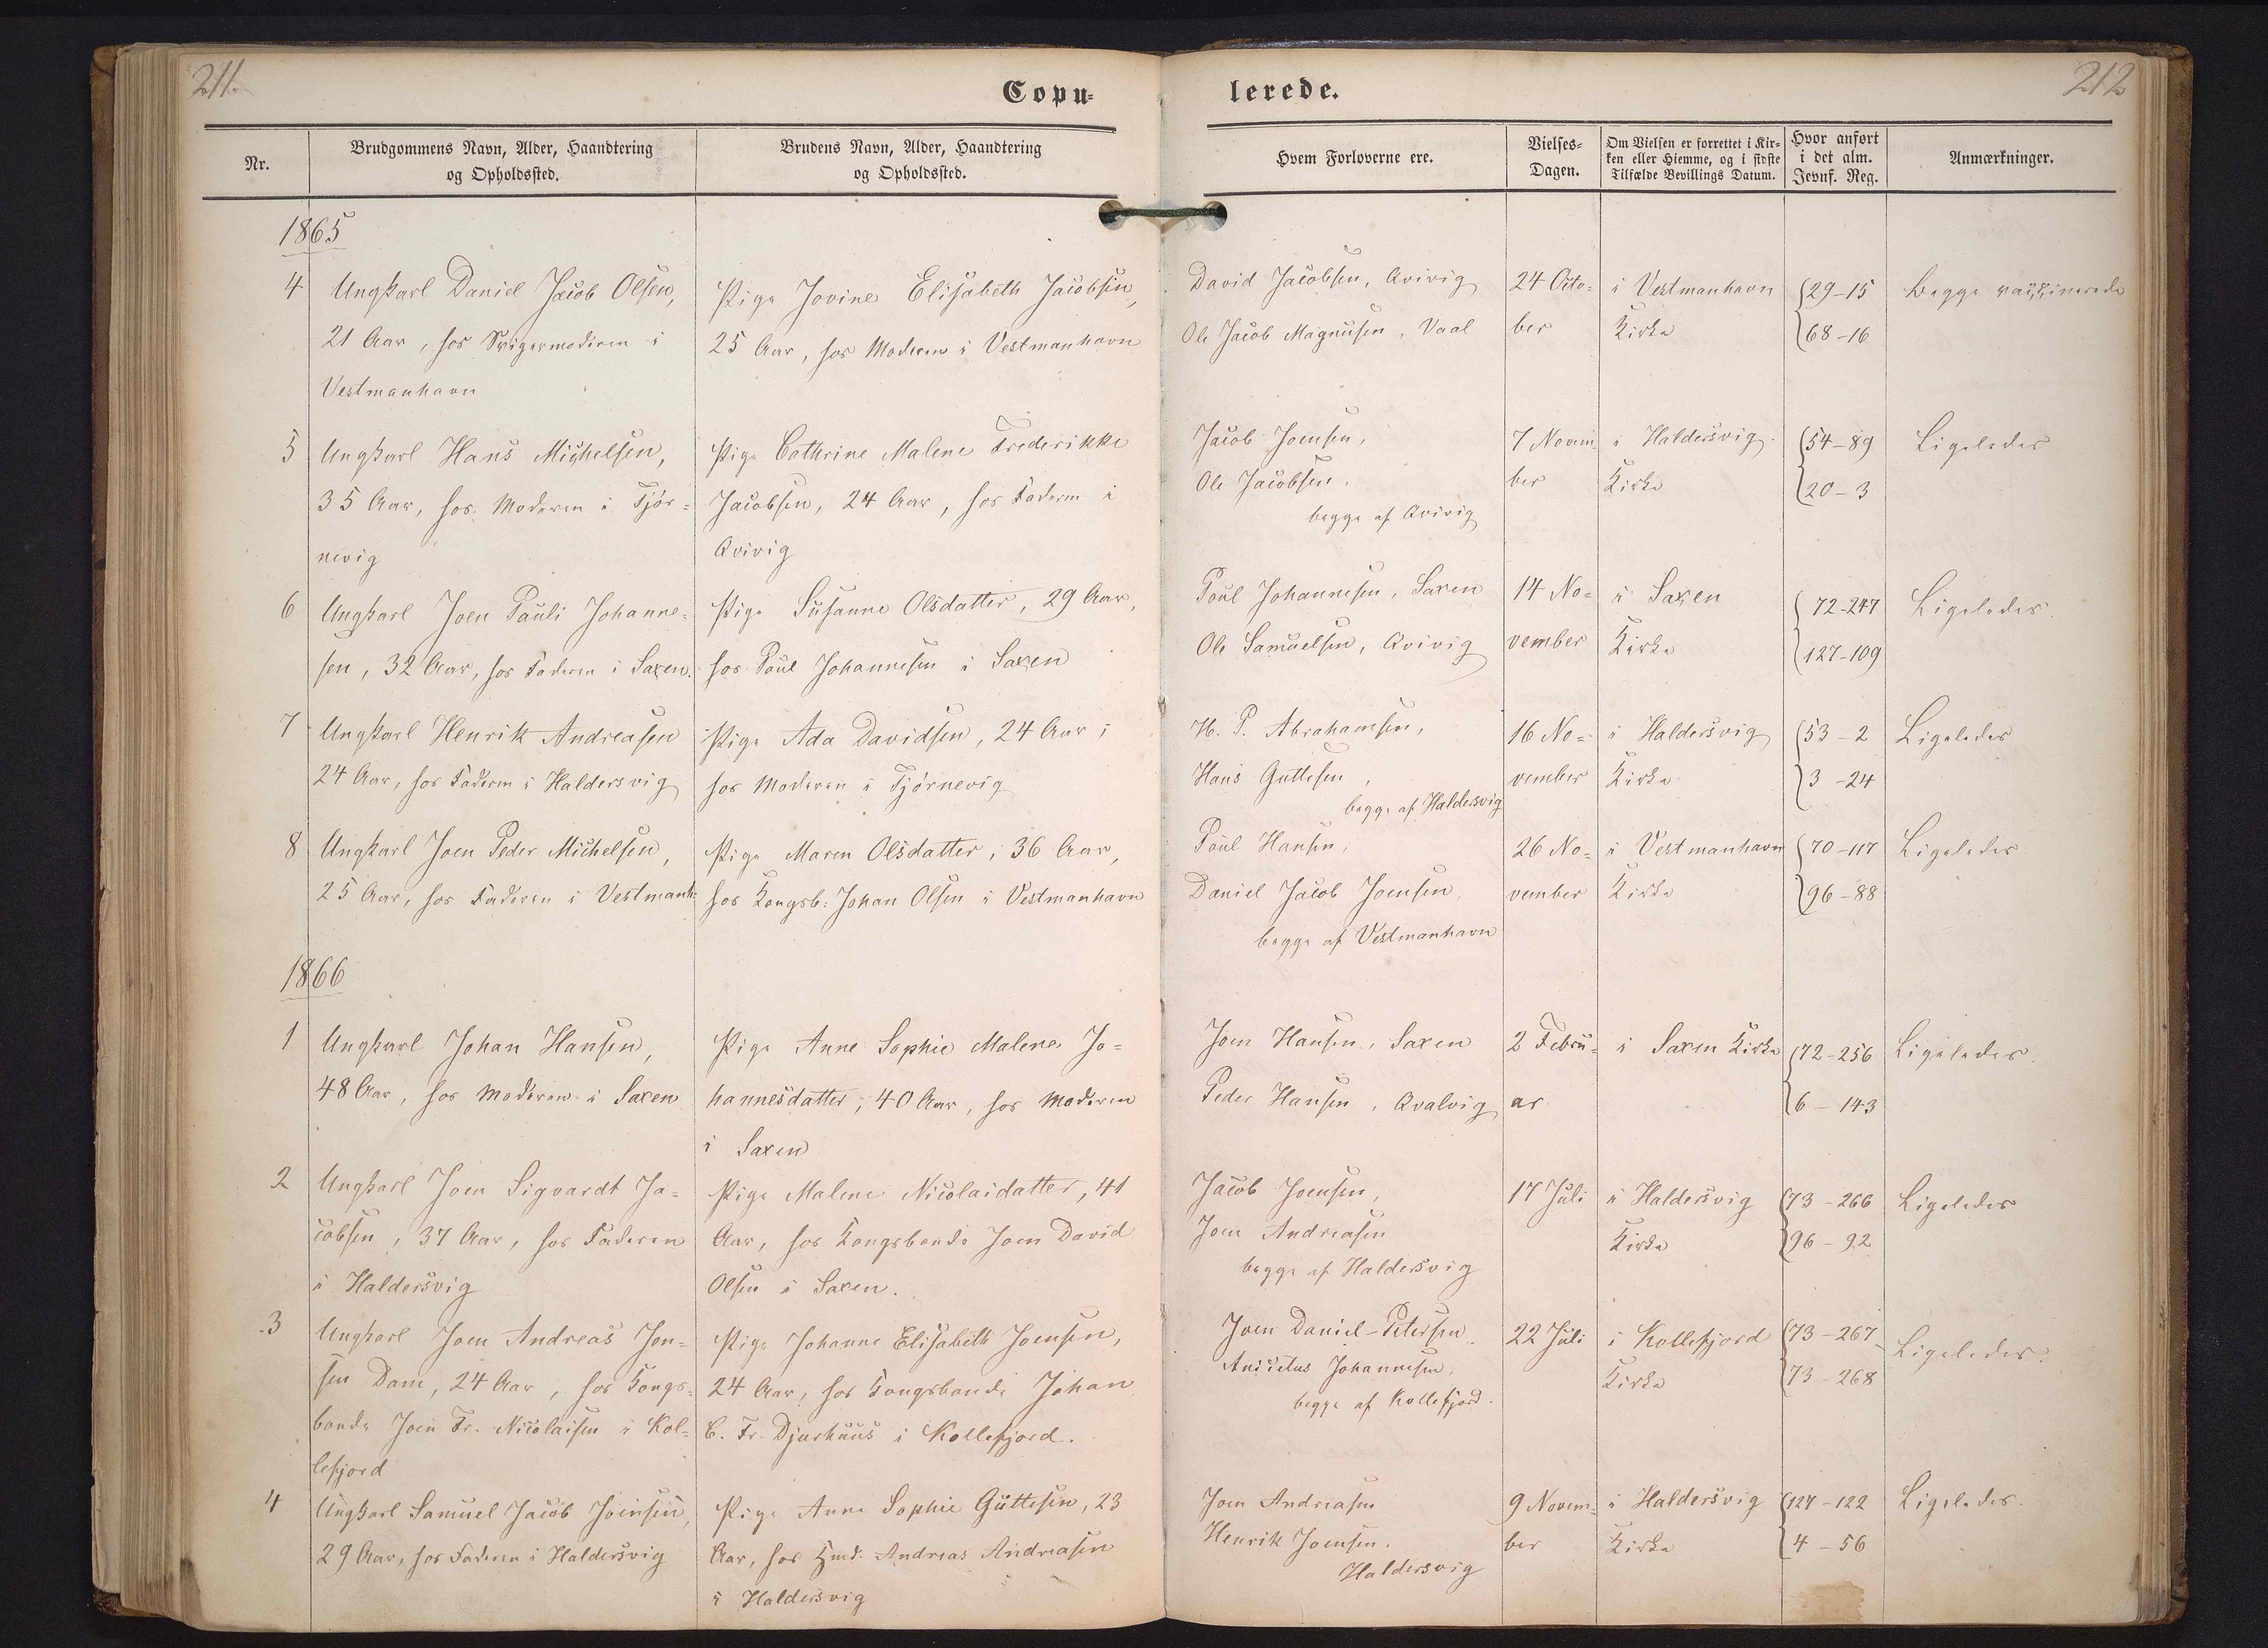 211.
Copu-
Nr.
Brudgommens Navn, Alder, Haandtering
og Opholdssted.
Brudens Navn, Alder, Haandtering
og Opholdssted.
1865
4
Ungkarl Daniel Jacob Olsen,
21 Aar, hos Svigermoderen i
Vestmanhavn
Pige Jovine Elisabeth Jacobsen,
25 Aar, hos Moderen i Vestmanhavn
5
Ungkarl Hans Michelsen,
35 Aar, hos Moderen i Tjör-
nevig
Pige Cathrine Malene Frederikke
Jacobsen, 24 Aar, hos Faderen i
Qvivig
6
Ungkarl Joen Pauli Johanne-
sen, 32 Aar, hos Faderen i Saxen.
Pige Susanne Olsdatter, 29 Aar,
hos Poul Johannesen i Saxen
7
Ungkarl Henrik Andreasen
24 Aar, hos Faderen i Haldersvig
Pige Ada Davidsen, 24 Aar i
hos Moderen i Tjörnevig
8
Ungkarl Joen Peder Michelsen,
25 Aar, hos Faderen i Vestmanh:
Pige Maren Olsdatter, 36 Aar,
hos Kongsb: Johan Olsen i Vestmanhavn
1866
1
Ungkarl Johan Hansen,
48 Aar, hos Moderen i Saxen
Pige Anne Sophie Malene Jo-
hannesdatter, 40 Aar, hos Moderen
i Saxen
2
Ungkarl Joen Sigvardt Ja-
cobsen, 37 Aar, hos Faderen
i Haldersvig
Pige Malene Nicolaidatter, 41
Aar, hos Kongsbonde Joen David
Olsen i Saxen.
3
Ungkarl Joen Andreas Jen-
sen Dam, 24 Aar, hos Kongs-
bonde Joen Fr. Nicolaisen i Kol-
lefjord
Pige Johanne Elisabeth Joensen,
24 Aar, hos Kongsbonde Johan
C. Fr. Djurhuus i Kollefjord.
4
Ungkarl Samuel Jacob Joensen,
29 Aar, hos Faderen i Haldersvig
Pige Anne Sophie Guttesen, 23
Aar, hos Andreas Andreasen
i Haldersvig
212
lerede.
Hvem Forloverne ere.
Vielses-
Dagen.
Om Vielsen er forrettet i Kir-
ken eller Hiemme, og i sidste
Tilfælde Bevillings Datum.
Hvor anført
i det alm.
Jevnf. Reg.
Anmærkninger.
David Jacobsen, Qvivig
Ole Jacob Magnusen, Vaal
24 Octo-
ber
i Vestmanhavn
Kirke
29-15
68-16
Begge vaccinerede
Jacob Joensen,
Ole Jacobsen.
begge af Qvivig
7 Novem-
ber
i Haldersvig
Kirke
54-89
20-3
Ligeledes
Poul Johannesen, Saxen
Ole Samuelsen, Qvivig
14 No-
vember
i Saxen
Kirke
72-247
127-109
Ligeledes.
H. P. Abrahamsen,
Hans Guttesen,
begge af Haldersvig
16 No-
vember
i Haldersvig
Kirke
53-2
3-24
Ligeledes
Poul Hansen,
Daniel Jacob Joensen,
begge af Vestmanhavn
26 No-
vember
i Vestmanhavn
Kirke
70-117
96-88
Ligeledes
Joen Hansen, Saxen
Peder Hansen, Qvalvig
2 Febru-
ar
i Saxen Kirke
72-256
6-143
Ligeledes.
Jacob Joensen,
Joen Andreasen
begge af Haldersvig
17 Juli
i Haldersvig
Kirke
73-266
96-92
Ligeledes
Joen Daniel Petersen.
Anicetus Johannesen,
begge af Kollefjord.
22 Juli
i Kollefjord
Kirke
73-267
73-268
Ligeledes.
Joen Andreasen
Henrik Joensen.
Haldersvig
9 Novem-
ber
i Haldersvig
Kirke
127-122
4-56
Ligeledes.